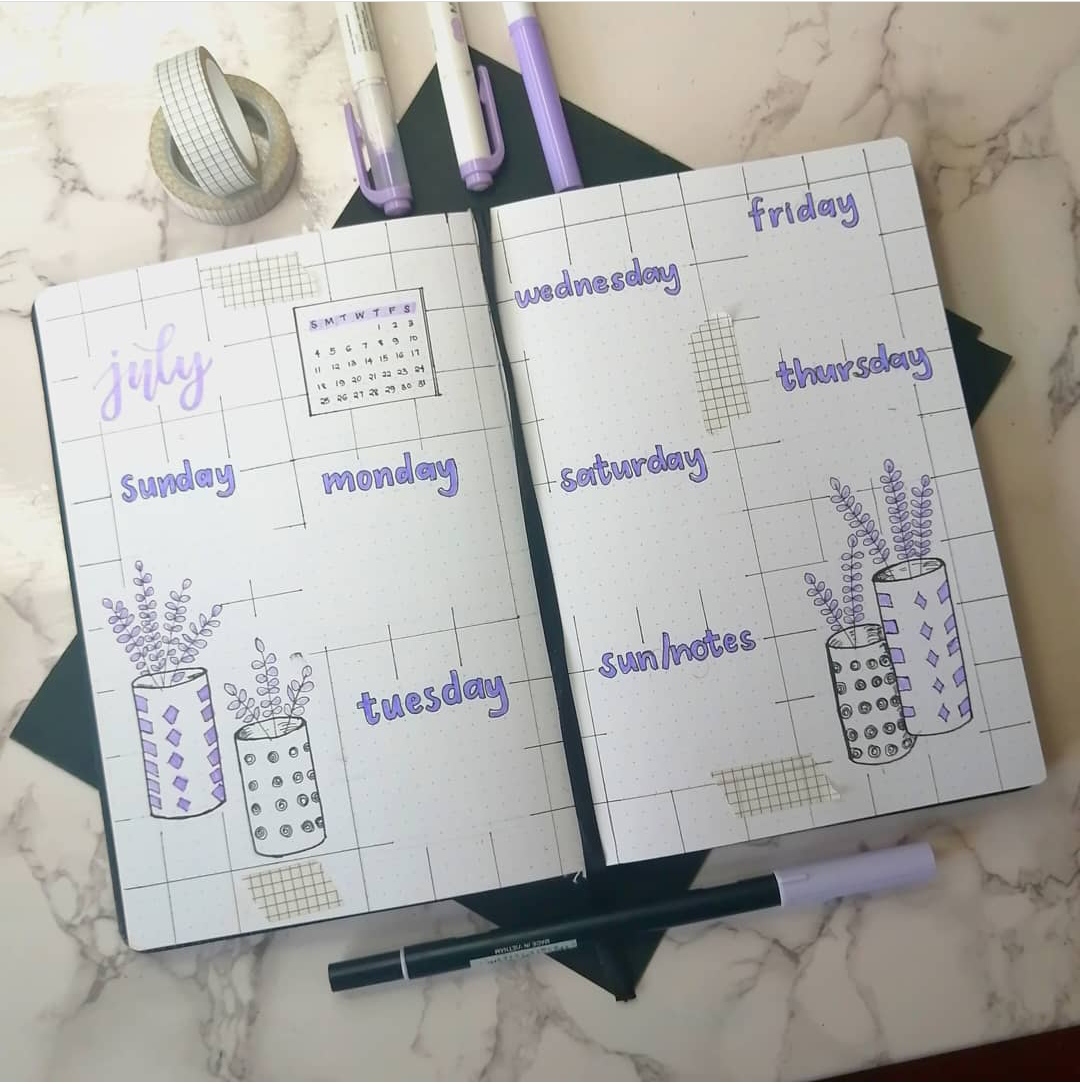 july
S M T W T F S
1 2 3
4 5 6 7 8 9 10
11 12 13 14 15 16 17
18 19 20 21 22 23 24
25 26 27 28 29 30 31
sunday
monday
tuesday
wednesday
friday
thursday
saturday
sun/notes
MADE IN VIETNAM